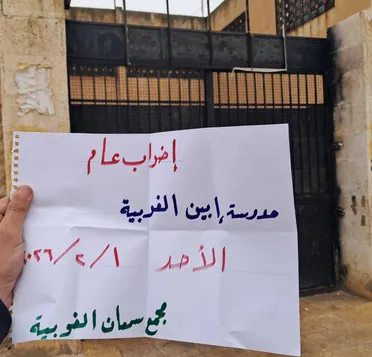 إضراب عام
مدرسة إبين الغربية
الأحد ٢٠٢٦/٢/١
مجمع سمعان الغربية